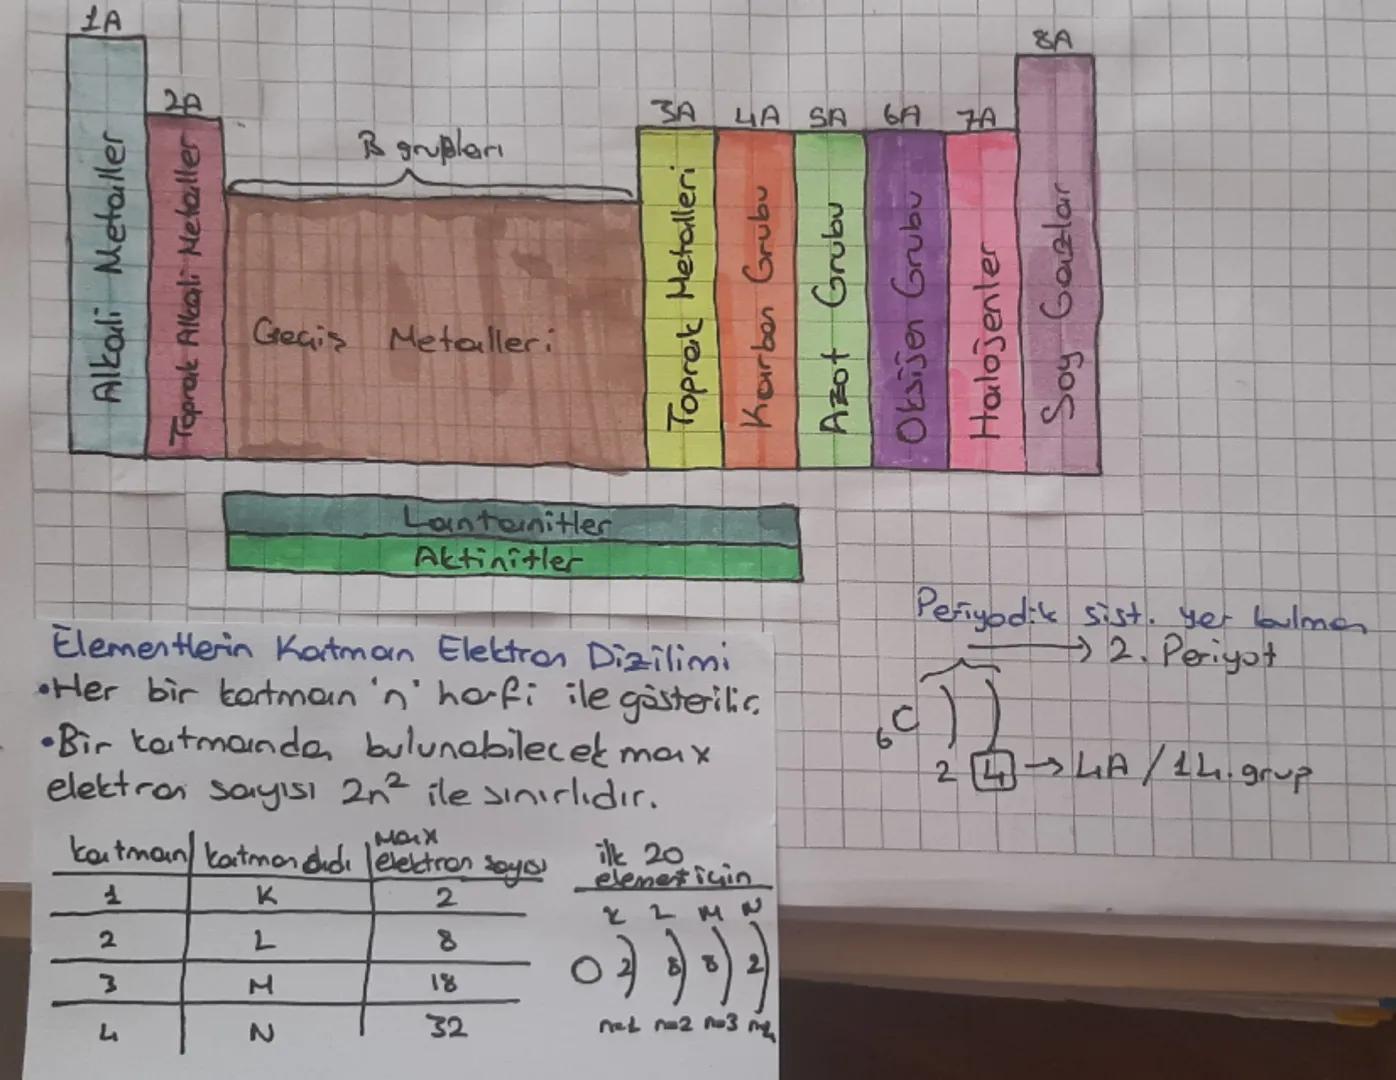 1A
8A
2A
3A 4A 5A 6A 7A
B grupları
Alkali Metaller
Toprak Alkali Metaller
Geçiş Metalleri
Toprak Metalleri
Karbon Grubu
Azot Grubu
Oksijen Grubu
Halojenler
Soy Gazlar
Lantanitler
Aktinitler
Periyodik sist. yer bulma
→ 2. Periyot
₆C
2 4 → 4A / 14. grup
Elementlerin Katman Elektron Dizilimi
•Her bir katman 'n' harfi ile gösterilir.
•Bir katmanda bulunabilecek max
elektron sayısı 2n² ile sınırlıdır.
katman katman adı Max elektron sayısı
1 K 2
2 L 8
3 M 18
4 N 32
ilk 20
element için
K L M N
2 8 8 2
n=1 n=2 n=3 n=4